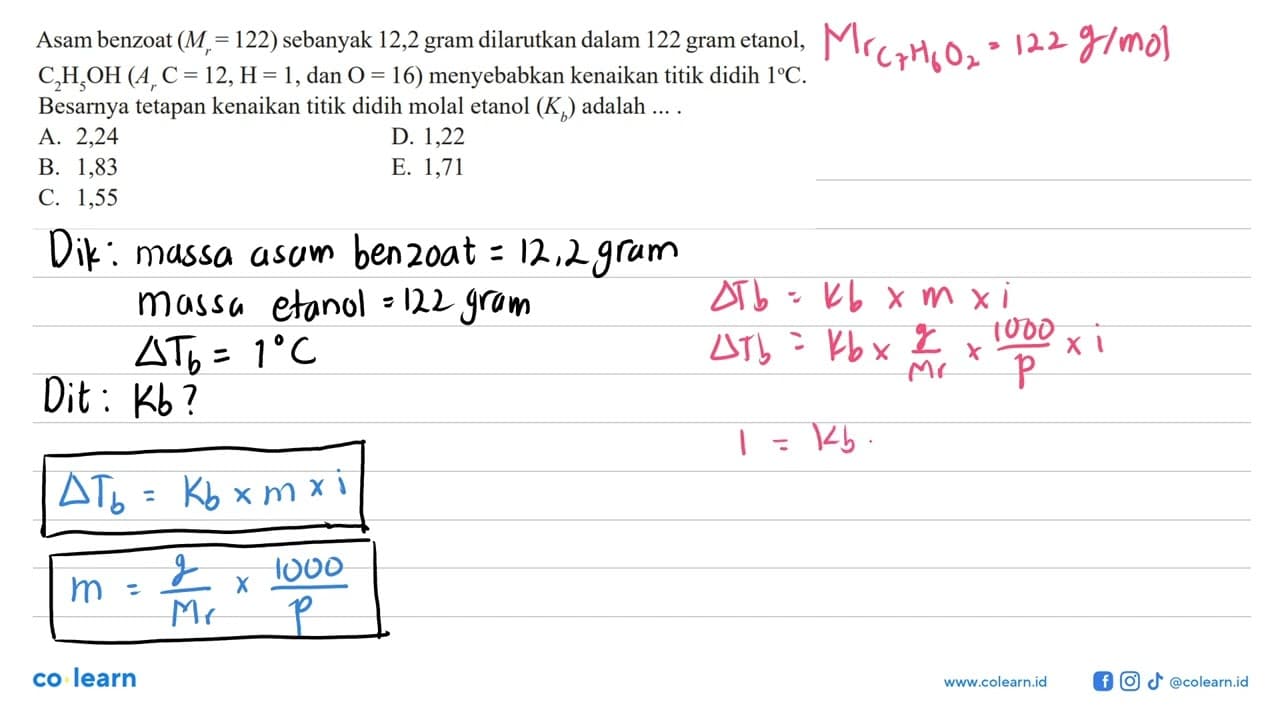 Asam benzoat (Mr = 122) sebanyak 12,2 gram dilarutkan dalam 122 gram etanol,
C2H5OH (Ar C = 12, H = 1, dan O = 16) menyebabkan kenaikan titik didih 1°C.
Besarnya tetapan kenaikan titik didih molal etanol (Kb) adalah ... .
A. 2,24
D. 1,22
B. 1,83
E. 1,71
C. 1,55
Mr C7H6O2 = 122 g/mol
Dik: massa asam benzoat = 12,2 gram
massa etanol = 122 gram
ΔTb = 1°C
Dit: Kb?
ΔTb = Kb x m x i
m = g/Mr x 1000/p
ΔTb = Kb x m x i
ΔTb = Kb x g/Mr x 1000/P x i
1 = Kb .
co learn
www.colearn.id
@colearn.id